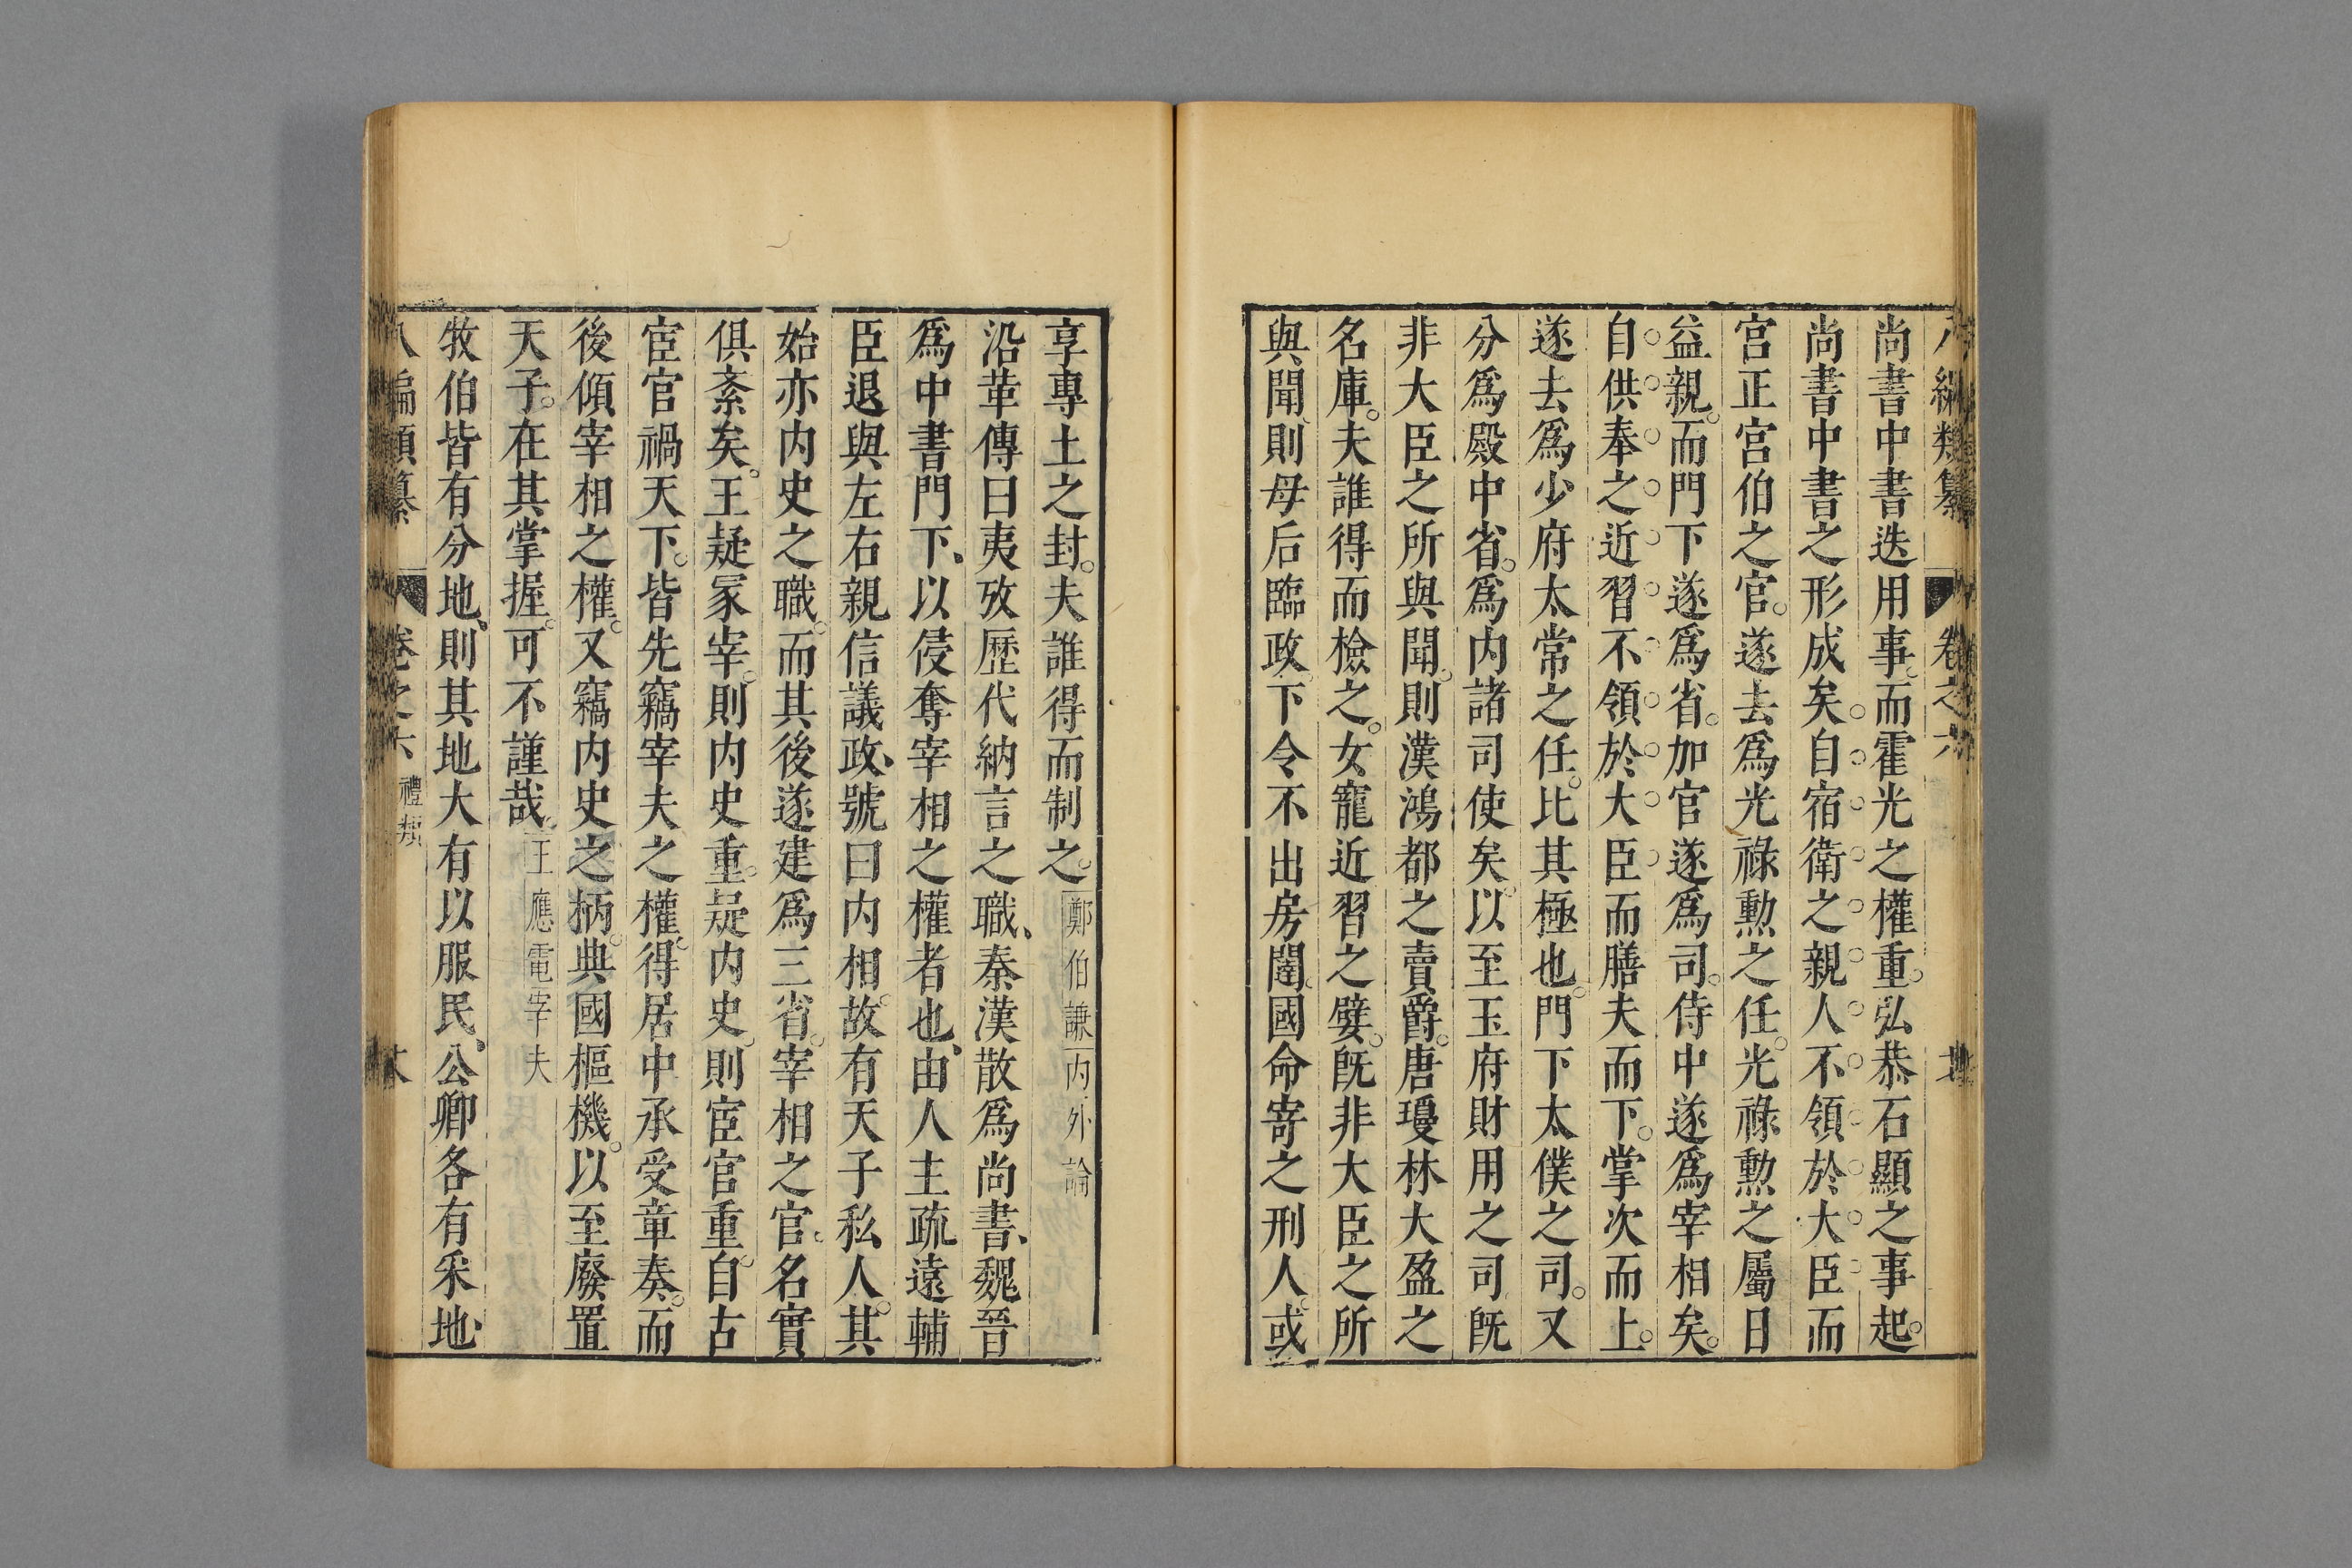 八編類纂 卷之六
尚書中書迭用事。而霍光之權重。弘恭石顯之事起。
尚書中書之形成矣。自宿衛之親人不領於大臣而
宮正宮伯之官。遂去爲光祿勳之任。光祿勳之屬日
益親。而門下遂爲省。加官遂爲司。侍中遂爲宰相矣。
自供奉之近習不領於大臣而膳夫而下。掌次而上。
遂去爲少府太常之任。比其極也。門下太僕之司。又
分爲殿中省。爲内諸司使矣。以至玉府財用之司旣
非大臣之所與聞。則漢鴻都之賣爵。唐瓊林大盈之
名庫。夫誰得而檢之。女寵近習之嬖。旣非大臣之所
與聞、則母后臨政。下令不出房闥。國命寄之刑人。或
享專土之封。夫誰得而制之。鄭伯謙内外論
沿革傳曰夷攷歷代納言之職、秦漢散爲尚書、魏晉
爲中書門下、以侵奪宰相之權者也、由人主疏遠輔
臣退與左右親信議政、號曰内相。故有天子私人。其
始亦内史之職。而其後遂建爲三省。宰相之官。名實
俱紊矣。王疑冢宰。則内史重。疑内史。則宦官重。自古
宦官禍天下。皆先竊宰夫之權。得居中承受章奏。而
後傾宰相之權。又竊内史之柄。典國樞機。以至廢置
天子。在其掌握。可不謹哉。王應電宰夫
牧伯皆有分地、則其地大有以服民、公卿各有采地、
八編類纂 卷之六 禮類